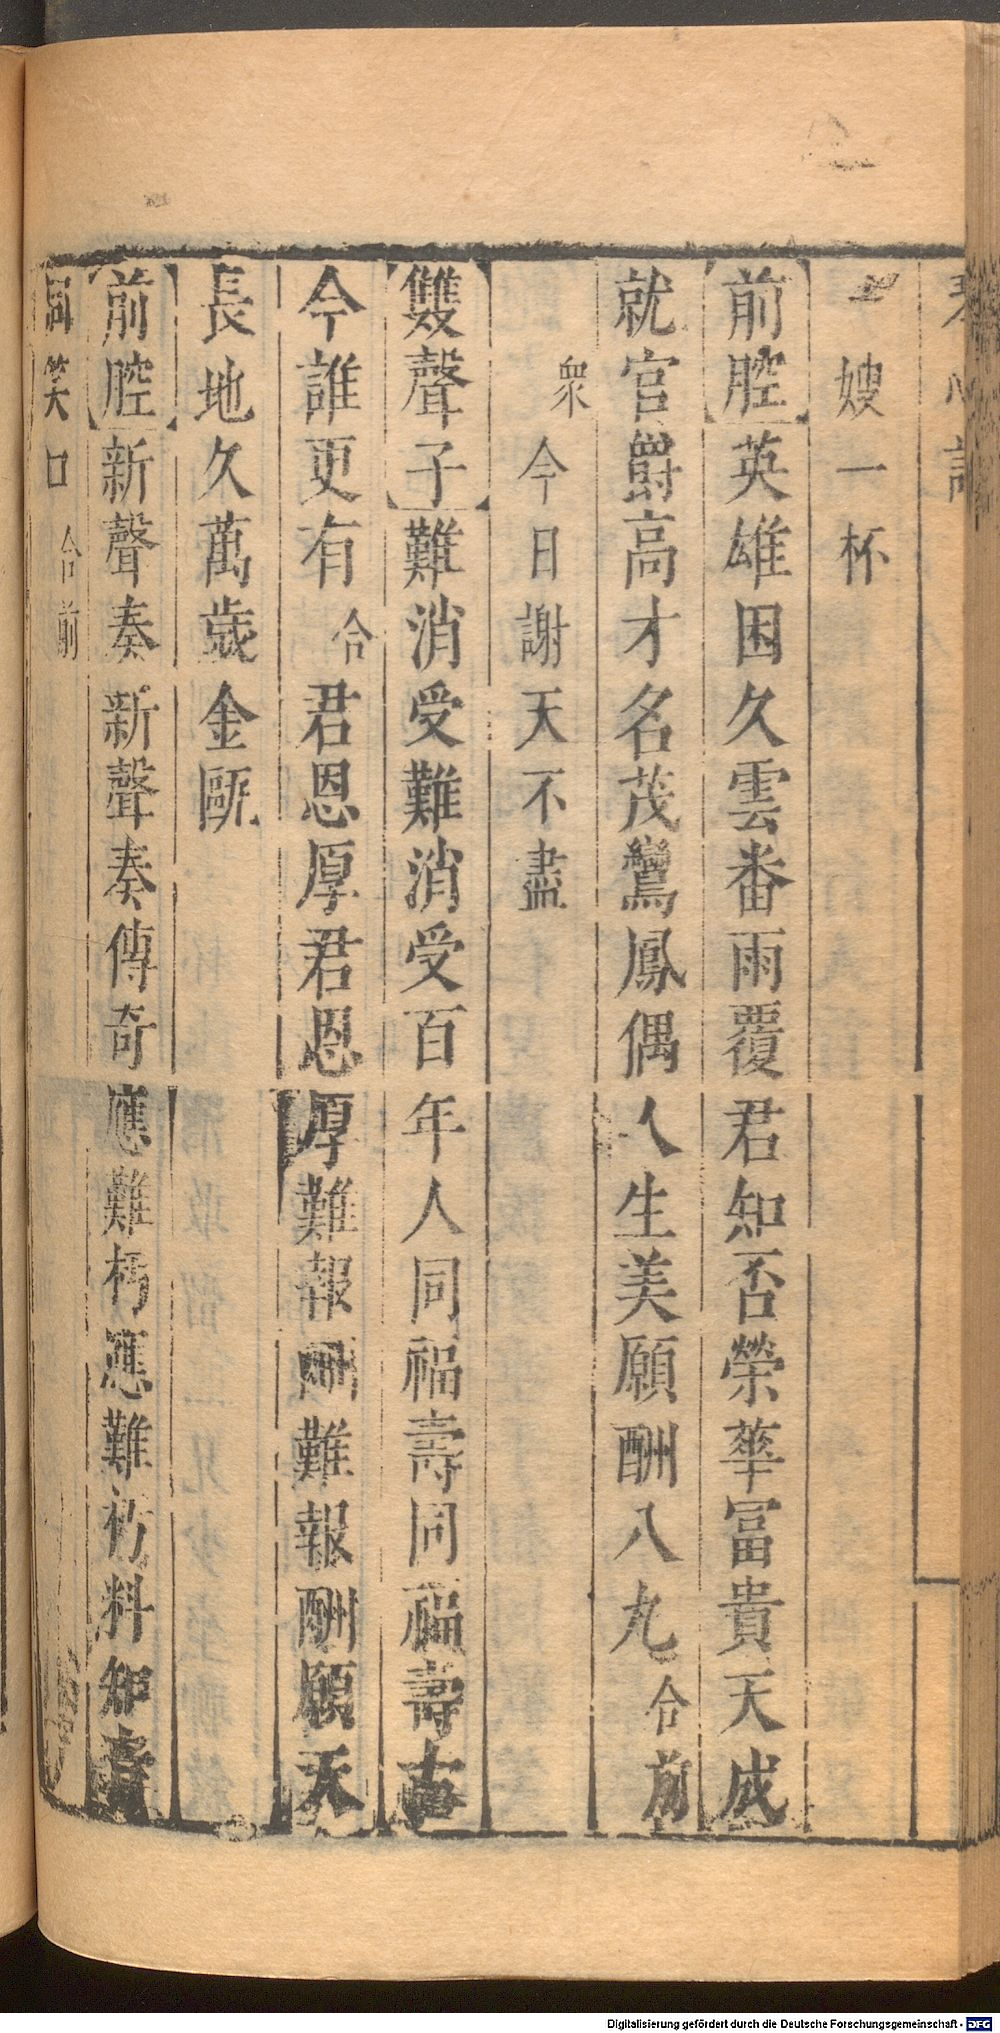 琴心記
嫂一杯
【前腔】英雄困久雲番雨覆君知否榮華冨貴天成
就官爵高才名茂鸞鳳偶人生美願酬八九 合前
衆 今日謝天不盡
【雙聲子】難消受難消受百年人同福壽同福壽古
今誰更有 合 君恩厚君恩厚難報酬難報酬願天
長地久萬歲金甌
【前腔】新聲奏新聲奏傳奇應難朽應難朽料知音
同笑口 合前
Digitalisierung gefördert durch die Deutsche Forschungsgemeinschaft - DFG